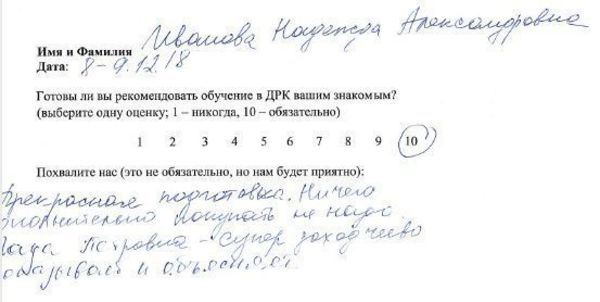 Имя и Фамилия Иванова Надежда Александровна
Дата: 8-9.12.18
Готовы ли вы рекомендовать обучение в ДРК вашим знакомым?
(выберите одну оценку; 1 – никогда, 10 – обязательно)
1 2 3 4 5 6 7 8 9 10
Похвалите нас (это не обязательно, но нам будет приятно):
Прекрасная подготовка. Ничего
покупать не надо.
Петровна - супер
и объясняет.